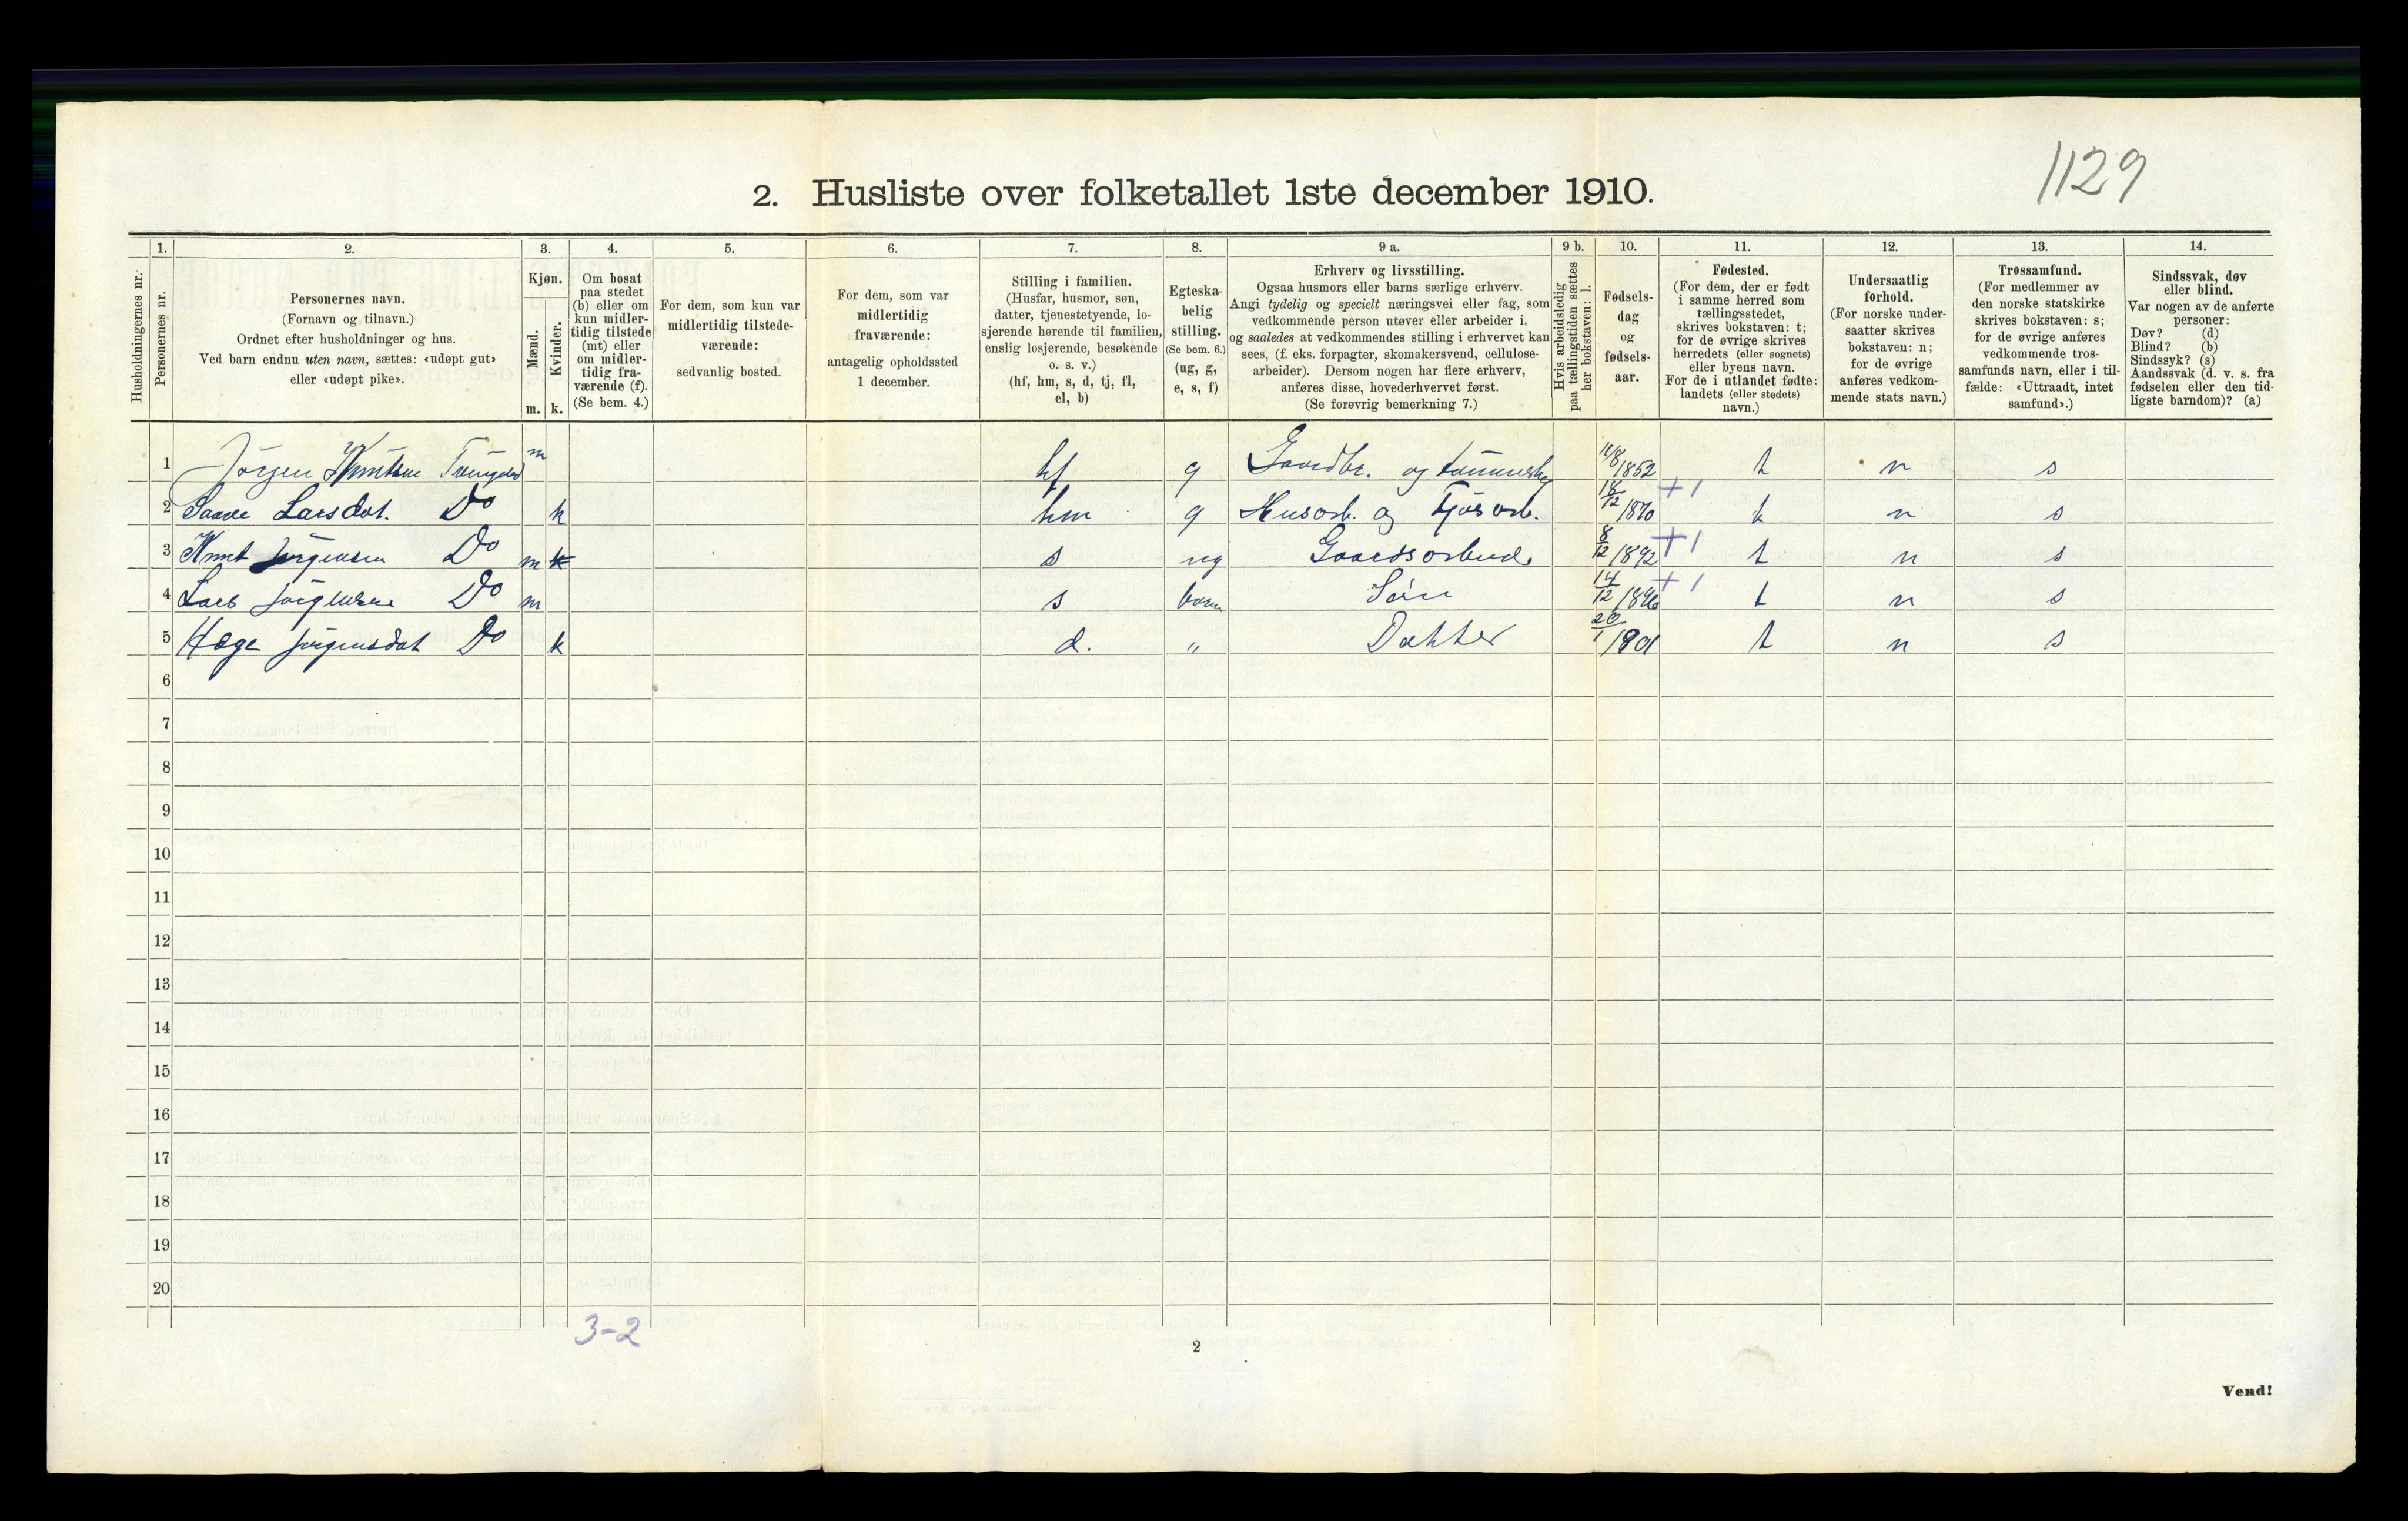 1129
2. Husliste over folketallet 1ste december 1910.
Husholdningernes nr.
1.
Personernes nr.
2.
Personernes navn.
(Fornavn og tilnavn.)
Ordnet efter husholdninger og hus.
Ved barn endnu uten navn, sættes: «udøpt gut»
eller «udøpt pike».
3.
Kjøn.
Mænd.
Kvinder.
m. k.
4.
Om bosat
paa stedet
(b) eller om
kun midler-
tidig tilstede
(mt) eller
om midler-
tidig fra-
værende (f).
(Se bem. 4.)
5.
For dem, som kun var
midlertidig tilstede-
værende:
sedvanlig bosted.
6.
For dem, som var
midlertidig
fraværende:
antagelig opholdssted
1 december.
7.
Stilling i familien.
(Husfar, husmor, søn,
datter, tjenestetyende, lo-
sjerende hørende til familien,
enslig losjerende, besøkende
o. s. v.)
(hf, hm, s, d, tj, fl,
el, b)
8.
Egteska-
belig
stilling.
(Se bem. 6.)
(ug, g,
e, s, f)
9 a.
Erhverv og livsstilling.
Ogsaa husmors eller barns særlige erhverv.
Angi tydelig og specielt næringsvei eller fag, som
vedkommende person utøver eller arbeider i,
og saaledes at vedkommendes stilling i erhvervet kan
sees, (f. eks. forpagter, skomakersvend, cellulose-
arbeider). Dersom nogen har flere erhverv,
anføres disse, hovederhvervet først.
(Se forøvrig bemerkning 7.)
9 b.
Hvis arbeidsledig
paa tællingstiden sættes
her bokstaven: l.
10.
Fødsels-
dag
og
fødsels-
aar.
11.
Fødested.
(For dem, der er født
i samme herred som
tællingsstedet,
skrives bokstaven: t;
for de øvrige skrives
herredets (eller sognets)
eller byens navn.
For de i utlandet fødte:
landets (eller stedets)
navn.)
12.
Undersaatlig
forhold.
(For norske under-
saatter skrives
bokstaven: n;
for de øvrige
anføres vedkom-
mende stats navn.)
13.
Trossamfund.
(For medlemmer av
den norske statskirke
skrives bokstaven: s;
for de øvrige anføres
vedkommende tros-
samfunds navn, eller i til-
fælde: «Uttraadt, intet
samfund».)
14.
Sindssvak, døv
eller blind.
Var nogen av de anførte
personer:
Døv? (d)
Blind? (b)
Sindssyk? (s)
Aandssvak (d. v. s. fra
fødselen eller den tid-
ligste barndom)? (a)
1 Jörgen Knutsen m hf g Gaardbr. og 11/8 1852 t n s
2 Larsdat. Do k hm g Husarb. og Fjösarb. 18/12 1870 +1 t n s
3 Knut Jörgensen Do m k s ug Gaardsarbeid. 8/12 1892 +1 t n s
4 Lars Jörgensen Do m s barn Sön 14/12 1896 +1 t n s
5 Hæge Jörgensdat Do k d. " Datter 20/1 1901 t n s
6
7
8
9
10
11
12
13
14
15
16
17
18
19
20
3-2
2
Vend!